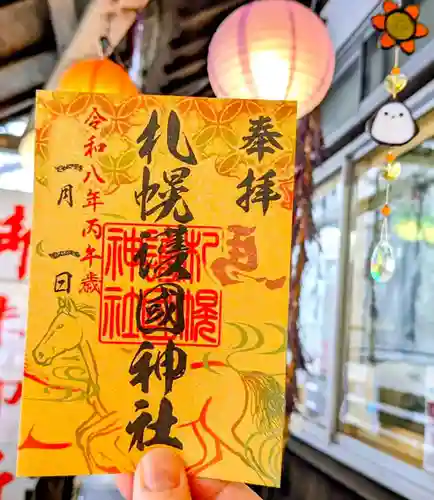 奉拝
馬
札幌護國神社
札幌
神社
令和八年丙午歳
月 日